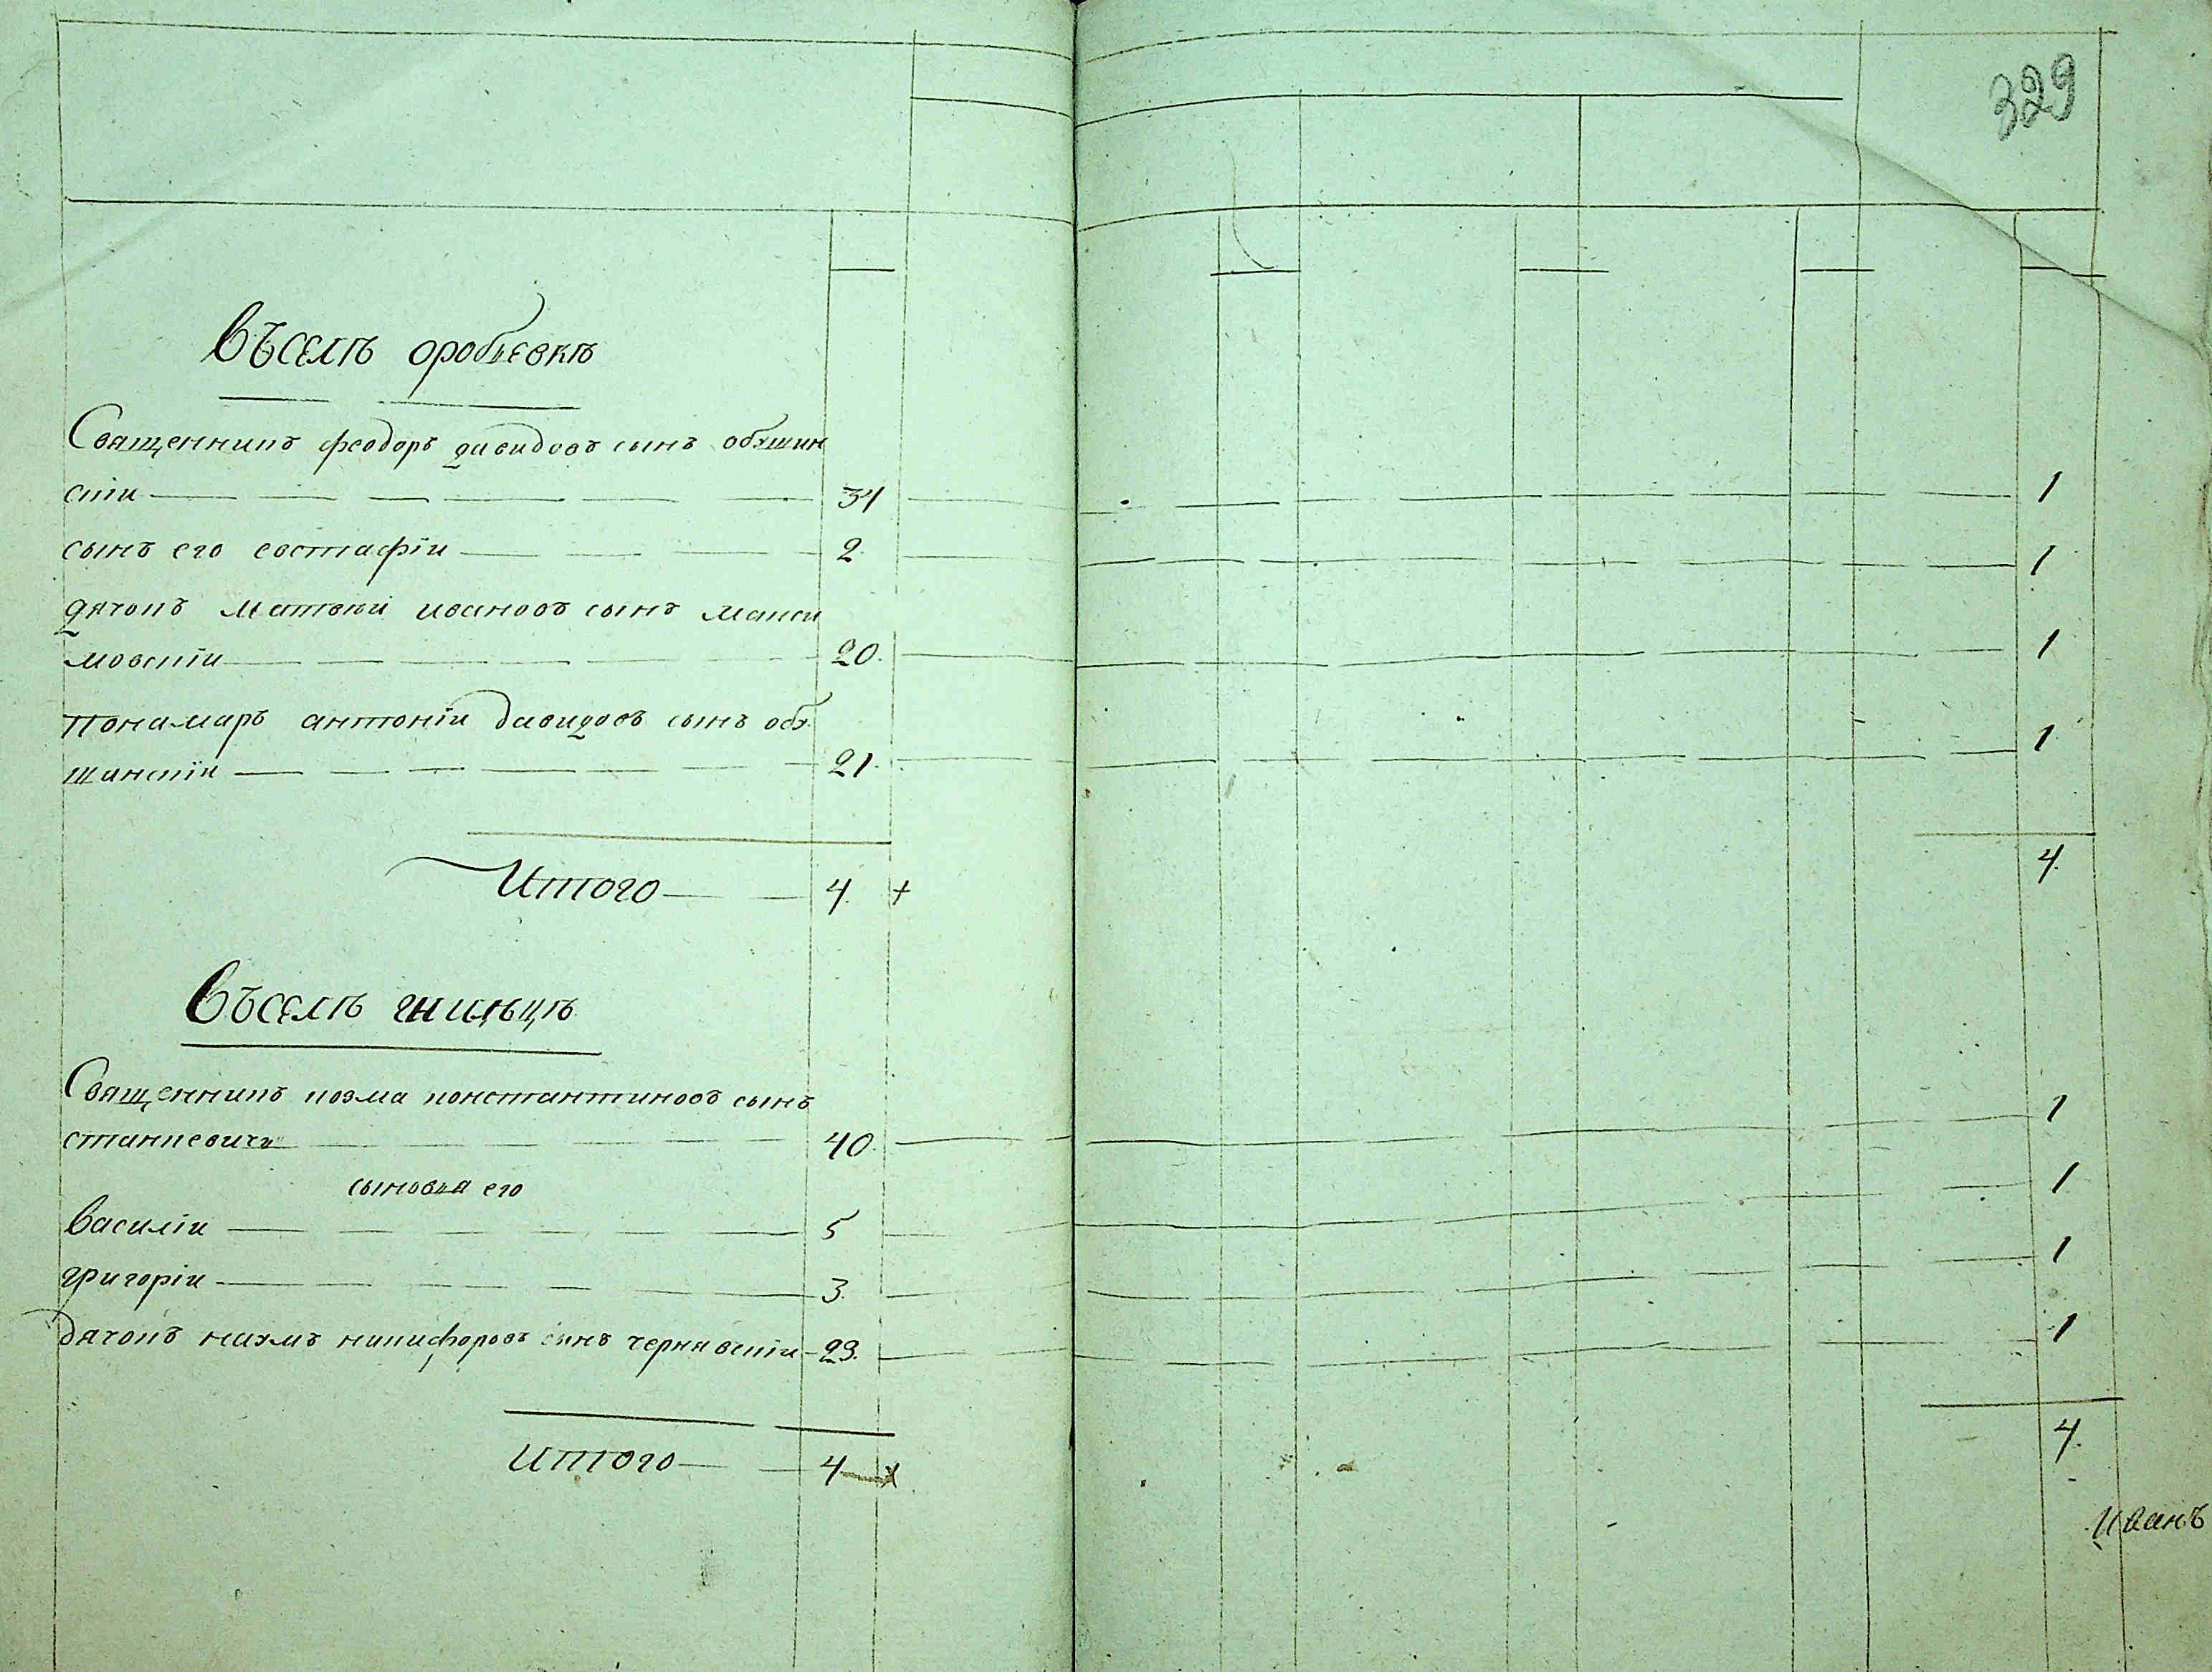 329
Въселѣ оробьевкѣ
Священникъ феодоръ давидовъ сынъ
скіи 34 1
сынъ его евстафіи 2 1
дячокъ матвѣй ивановъ сынъ макси
мовскіи 20. 1
понамарь антоніи давидовъ сынъ
шинскіи 21. 1
Итого 4. + 4.
Въселѣ гнилицѣ
Священникъ козма константиновъ сынъ
станкевичъ 40. 1
сыновья его
василіи 5 1
григоріи 3. 1
дячокъ наумъ никифоровъ сынъ чернявскіи 23. 1
Итого 4 4.
Иванъ